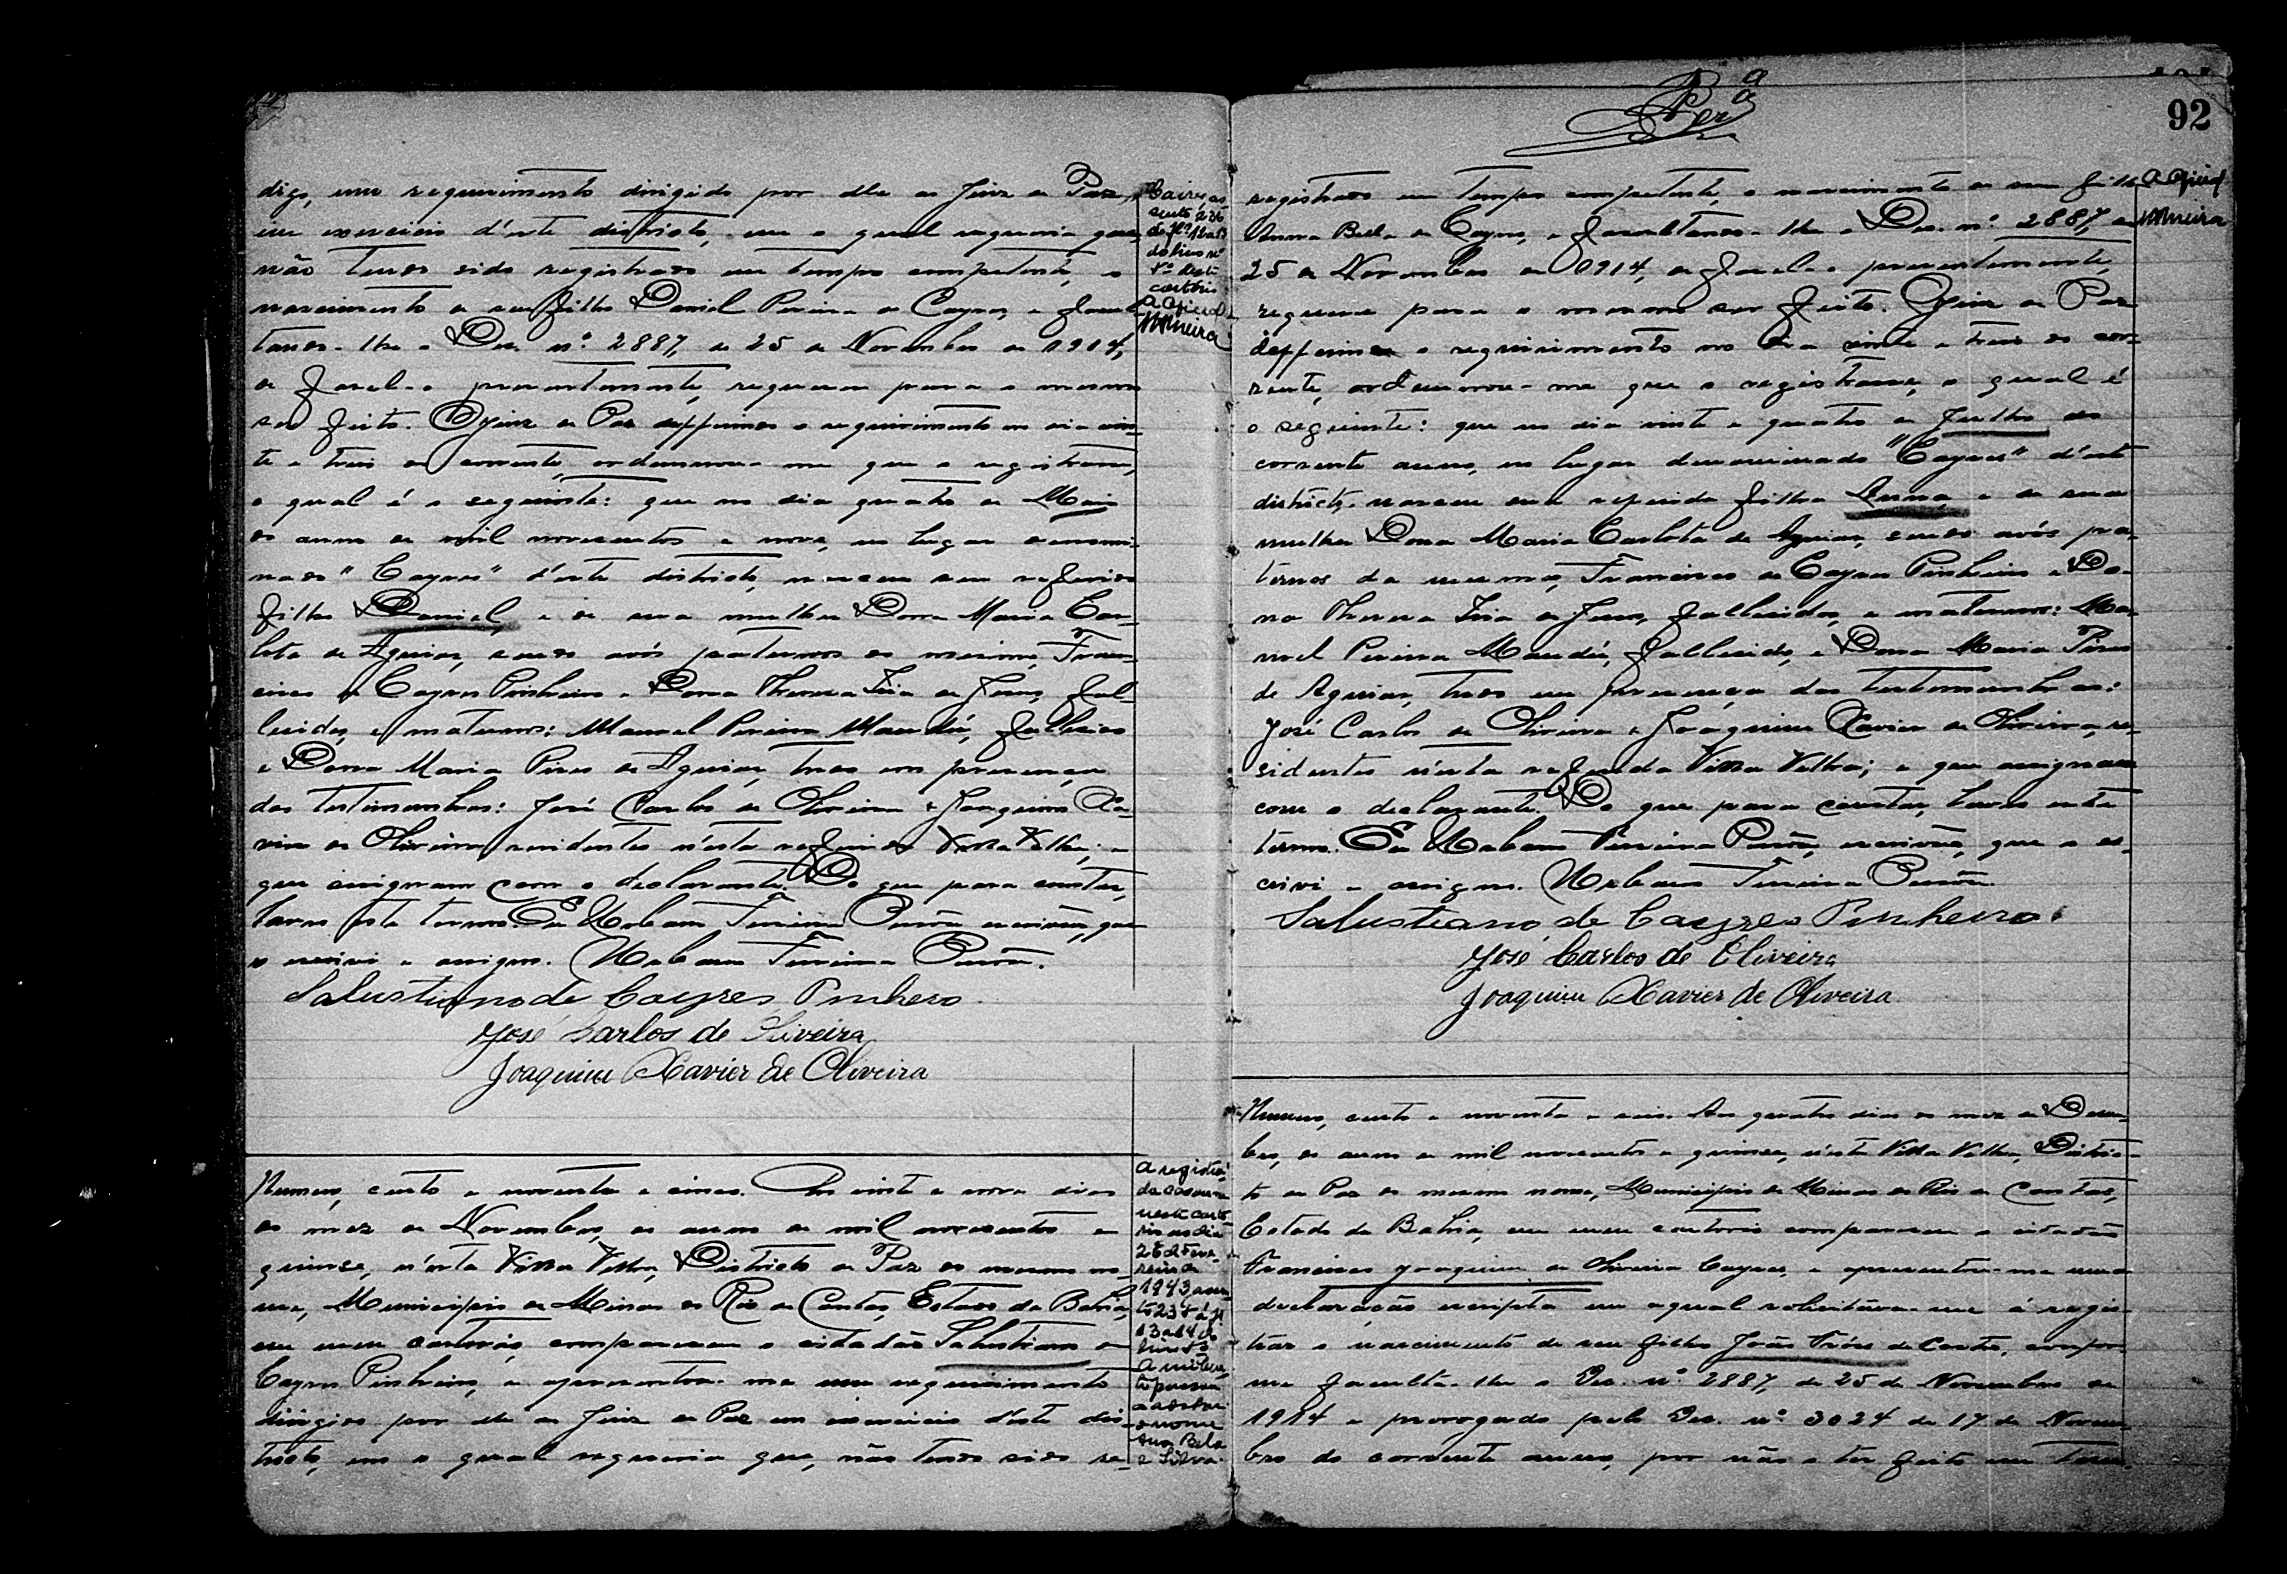 digo, um requerimento dirigido por elle ao Juiz de Paz,
em exercicio d'este districto, em o qual requeria que,
não tendo sido registrado em tempo competente, o
nascimento de seu filho Daniel Pereira de Cayres, e facul-
tando-lhe o Dec. nº 2887, de 25 de Novembro de 1914,
de fazel-o presentemente, requereu para o mesmo
ser feito. O Juiz de Paz defferindo o requerimento no dia vin-
te e treis do corrente, ordenou-me que o registrasse,
o qual é o seguinte: que no dia quatro de Maio
do anno de mil novecentos e nove, no lugar denomi-
nado "Cayres" d'este districto, nasceu seu referido
filho Daniel, e de sua mulher Dona Maria Car-
lota de Aguiar, sendo avós paternos do mesmo, Fran-
cisco de Cayres Pinheiro e Dona Thereza Iria de Jesus, fal-
lecidos, e maternos: Manoel Pereira Mandú, fallecido
e Dona Maria Pires de Aguiar, tudo em presença
das testemunhas: José Carlos de Oliveira e Joaquim Xa-
vier de Oliveira, residentes n'esta referida Villa Velha; e
que assignam com o declarante. Do que para constar,
lavro este termo. Eu Urbano Ferreira escrivão, que
o escrivi e assigno. Urbano Ferreira
Salustiano de Cayres Pinhero
José Carlos de Oliveira
Joaquim Xavier de Oliveira
Numero, cento e noventa e cinco. Aos vinte e nove dias
do mez de Novembro, do anno de mil novecentos e
quinze, n'esta Villa Velha, Districto de Paz do mesmo no-
me, Municipio de Minas do Rio de Contas, Estado da Bahia,
em meu cartorio compareceu o cidadão Salustiano de
Cayres Pinheiro, e apresentou-me um requerimento
dirigido por elle ao Juiz de Paz em exercicio d'este dis-
tricto, em o qual requeria que, não tendo sido re-
assento 236
do livro nº
cartorio
A Oficial
A registra-
da casou-se
neste carto-
rio no dia
26 de
1943
13 a 14 do
o nome
Ana Bela
e Silva.
92
registrado em tempo competente, o nascimento de sua filha
Anna Bella de Cayres, e facultando-lhe o Dec. nº 2887, de
25 de Novembro de 1914, de fazel-o presentemente,
requereu para o mesmo ser feito. O Juiz de Paz
defferindo o requerimento no dia vinte e treis do cor-
rente, ordenou-me que o registrasse, o qual é
o seguinte: que no dia vinte e quatro de Julho do
corrente anno, no lugar denominado "Cayres" d'este
districto, nasceu sua referida filha Anna, e de sua
mulher Dona Maria Carlota de Aguiar, sendo avós pa-
ternos da mesma, Francisco de Cayres Pinheiro e Do-
na Thereza Iria de Jesus, fallecidos, e maternos: Ma-
noel Pereira Mandú, fallecido, e Dona Maria Pires
de Aguiar, tudo em presença das testemunhas:
José Carlos de Oliveira e Joaquim Xavier de Oliveira, re-
sidentes n'esta referida Villa Velha; e que assignam
com o declarante. Do que para constar, lavro este
termo. Eu Urbano Ferreira escrivão, que o es-
crivi e assigno. Urbano Ferreira
Salustiano de Cayres Pinheiro
José Carlos de Oliveira
Joaquim Xavier de Oliveira
Numero, cento e noventa e seis. Aos quatro dias do mez de Dezem-
bro, do anno de mil novecentos e quinze, n'esta Villa Velha, Distric-
to de Paz do mesmo nome, Municipio de Minas do Rio de Contas,
Estado da Bahia, em meu cartorio compareceu o cidadão
Francisco Joaquim de Oliveira Cayres, e apresentou-me uma
declaração escripta em a qual solicitava-me á regis-
trar o nascimento de seu filho João de Castro, confor-
me faculta-lhe o Dec. nº 2887, de 25 de Novembro de
1914 e prorogado pelo Dec. nº 3024 de 17 de Novem-
bro do corrente anno, por não o ter feito em tem-
A Oficial